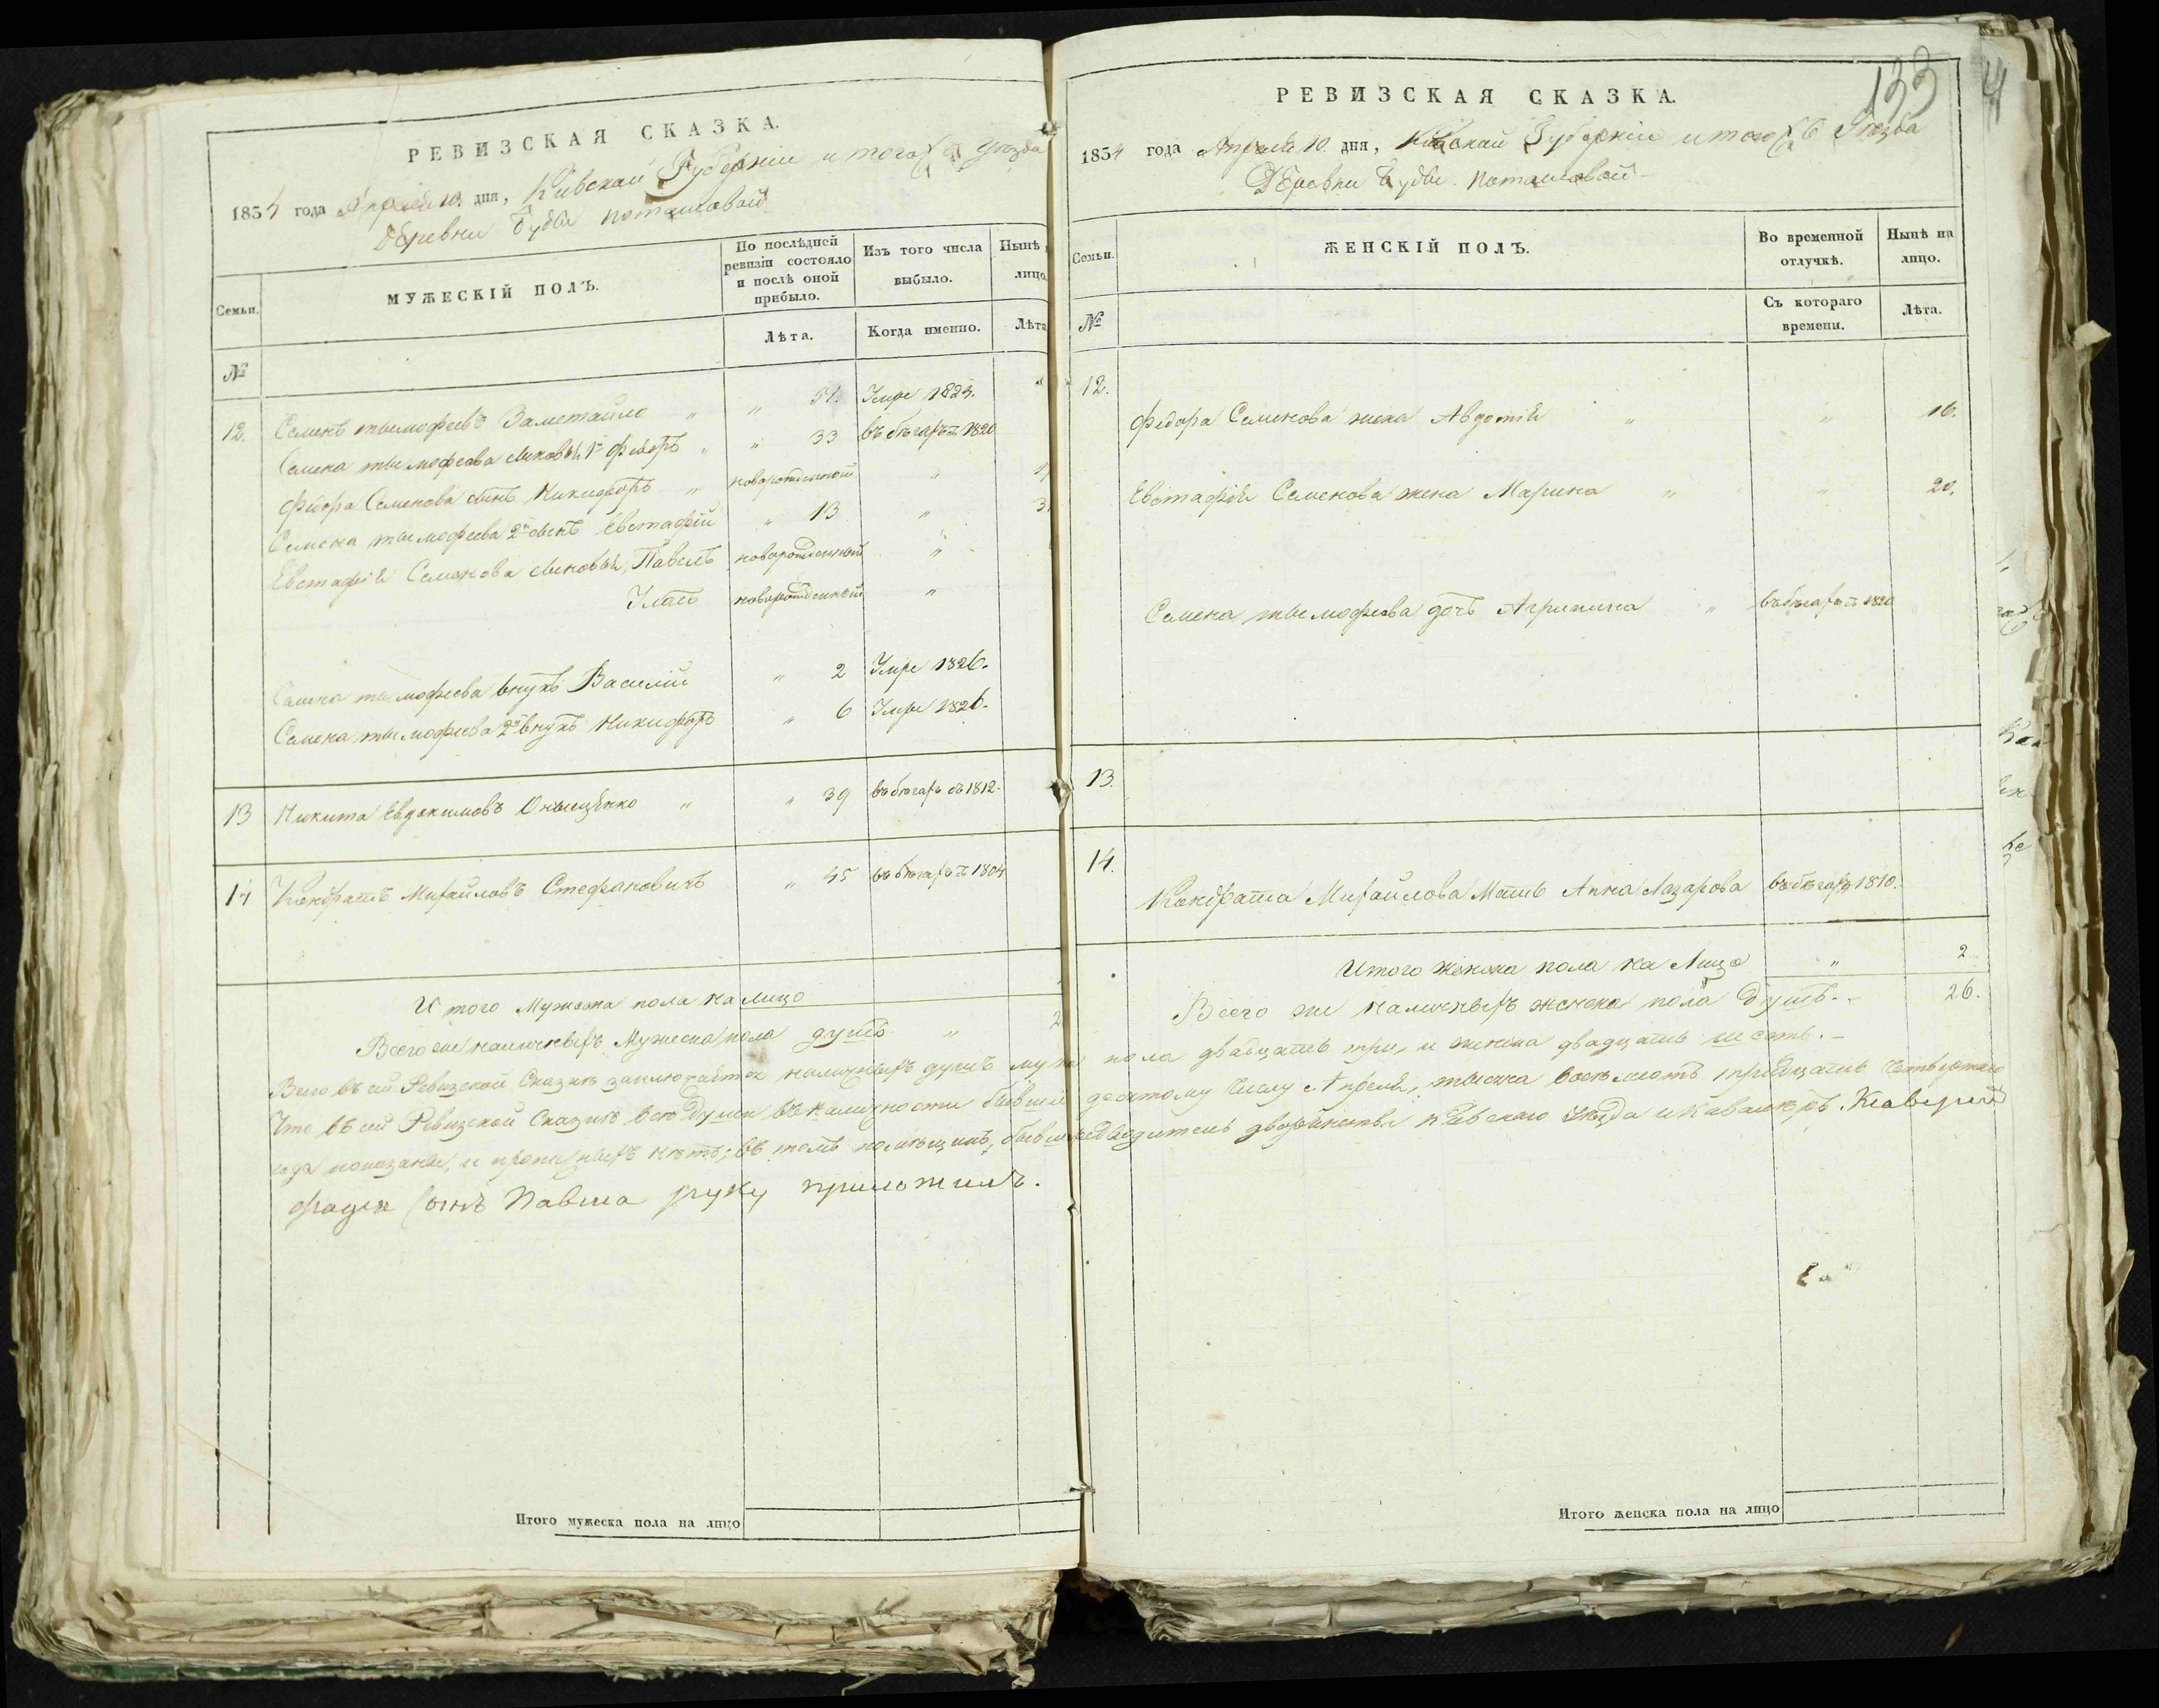 РЕВИЗСКАЯ СКАЗКА.
1834 года Апреля 10. дня, Кіевской Губерніи и того жъ Уѣзда
Деревни Будки Поташовой
Семьи.
МУЖЕСКІЙ ПОЛЪ.
По послѣдней ревизіи состояло и послѣ оной прибыло.
Изъ того числа выбыло.
Нынѣ
лицо.
№
Лѣта.
Когда именно.
Лѣта
12. Семенъ тымофеевъ Заметайло " " 51. Умре 1823. "
Семена тымофеева сыновья, 1й федоръ " " 33 въ бѣгахъ съ 1820
федора Семенова сынъ Никифоръ " новорожденный "
Семена тымофеева 2й сынъ Евстафій " 13 " 3
Евстафія Семенова сыновья, Павелъ новорожденный "
Уласъ новорожденный "
Семена тымофеева внукъ Василій " 2 Умре 1826.
Семена тымофеева 2й внукъ Никифоръ " 6 Умре 1826.
13 Никита Евдокимовъ Онищенко " " 39 въ бѣгахъ съ 1812.
14 Кондратъ Михайловъ Стефановичъ " 45 въ бѣгахъ съ 1804
Итого Мужеска пола на лицо
Всего же наличныхъ Мужеска пола душъ " 2
Всего въ сей Ревизской Сказкѣ заключается наличныхъ душъ муже
Что въ сей Ревизской Сказкѣ всѣ души въ наличности бывшіе
года показаны, и прописныхъ нѣтъ; въ томъ помѣщикъ, бывш
фадея Сынъ Павша руку приложилъ.
Итого мужеска пола на лицо
133
РЕВИЗСКАЯ СКАЗКА.
1834 года Апреля 10. дня, Кіевской Губерніи и того жъ Уѣзда
Деревни Будки Поташовой
Семьи.
ЖЕНСКІЙ ПОЛЪ.
Во временной отлучкѣ.
Нынѣ на лицо.
№
Съ котораго времени.
Лѣта.
12.
федора Семенова жена Авдотія " " 16.
Евстафія Семенова жена Марина " " 20.
Семена тымофеева дочь Агрипина " въ бѣгахъ съ 1820
13.
14.
Кондрата Михайлова Мать Анна Лазарова въ бѣгахъ 1810.
Итого женска пола на Лицо " 2
Всего же наличныхъ женска пола душъ. 26.
пола двадцать три, и женска двадцать шесть.
десятому числу Апреля, тысяча восемьсотъ тридцать четвертаго
едводитель дворянства Кіевскаго Уѣзда и Кавалеръ. Ксаверій
Итого женска пола на лицо